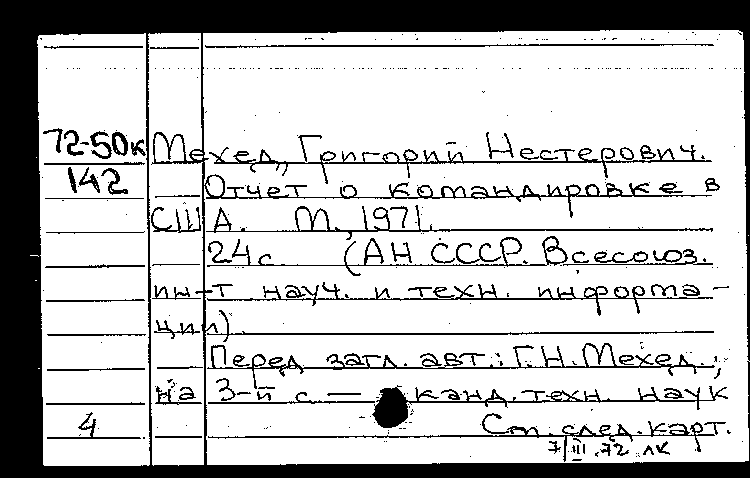 72-50к Мехед, Григорий Нестерович.
142 Отчет о командировке в
США. М., 1971.
24 с. (АН СССР. Всесоюз.
ин-т науч. и техн. информа-
ции).
Перед загл. авт.: Г.Н. Мехед.;
на 3-й с — канд. техн. наук
4 См. след. карт.
7/III.72 лк